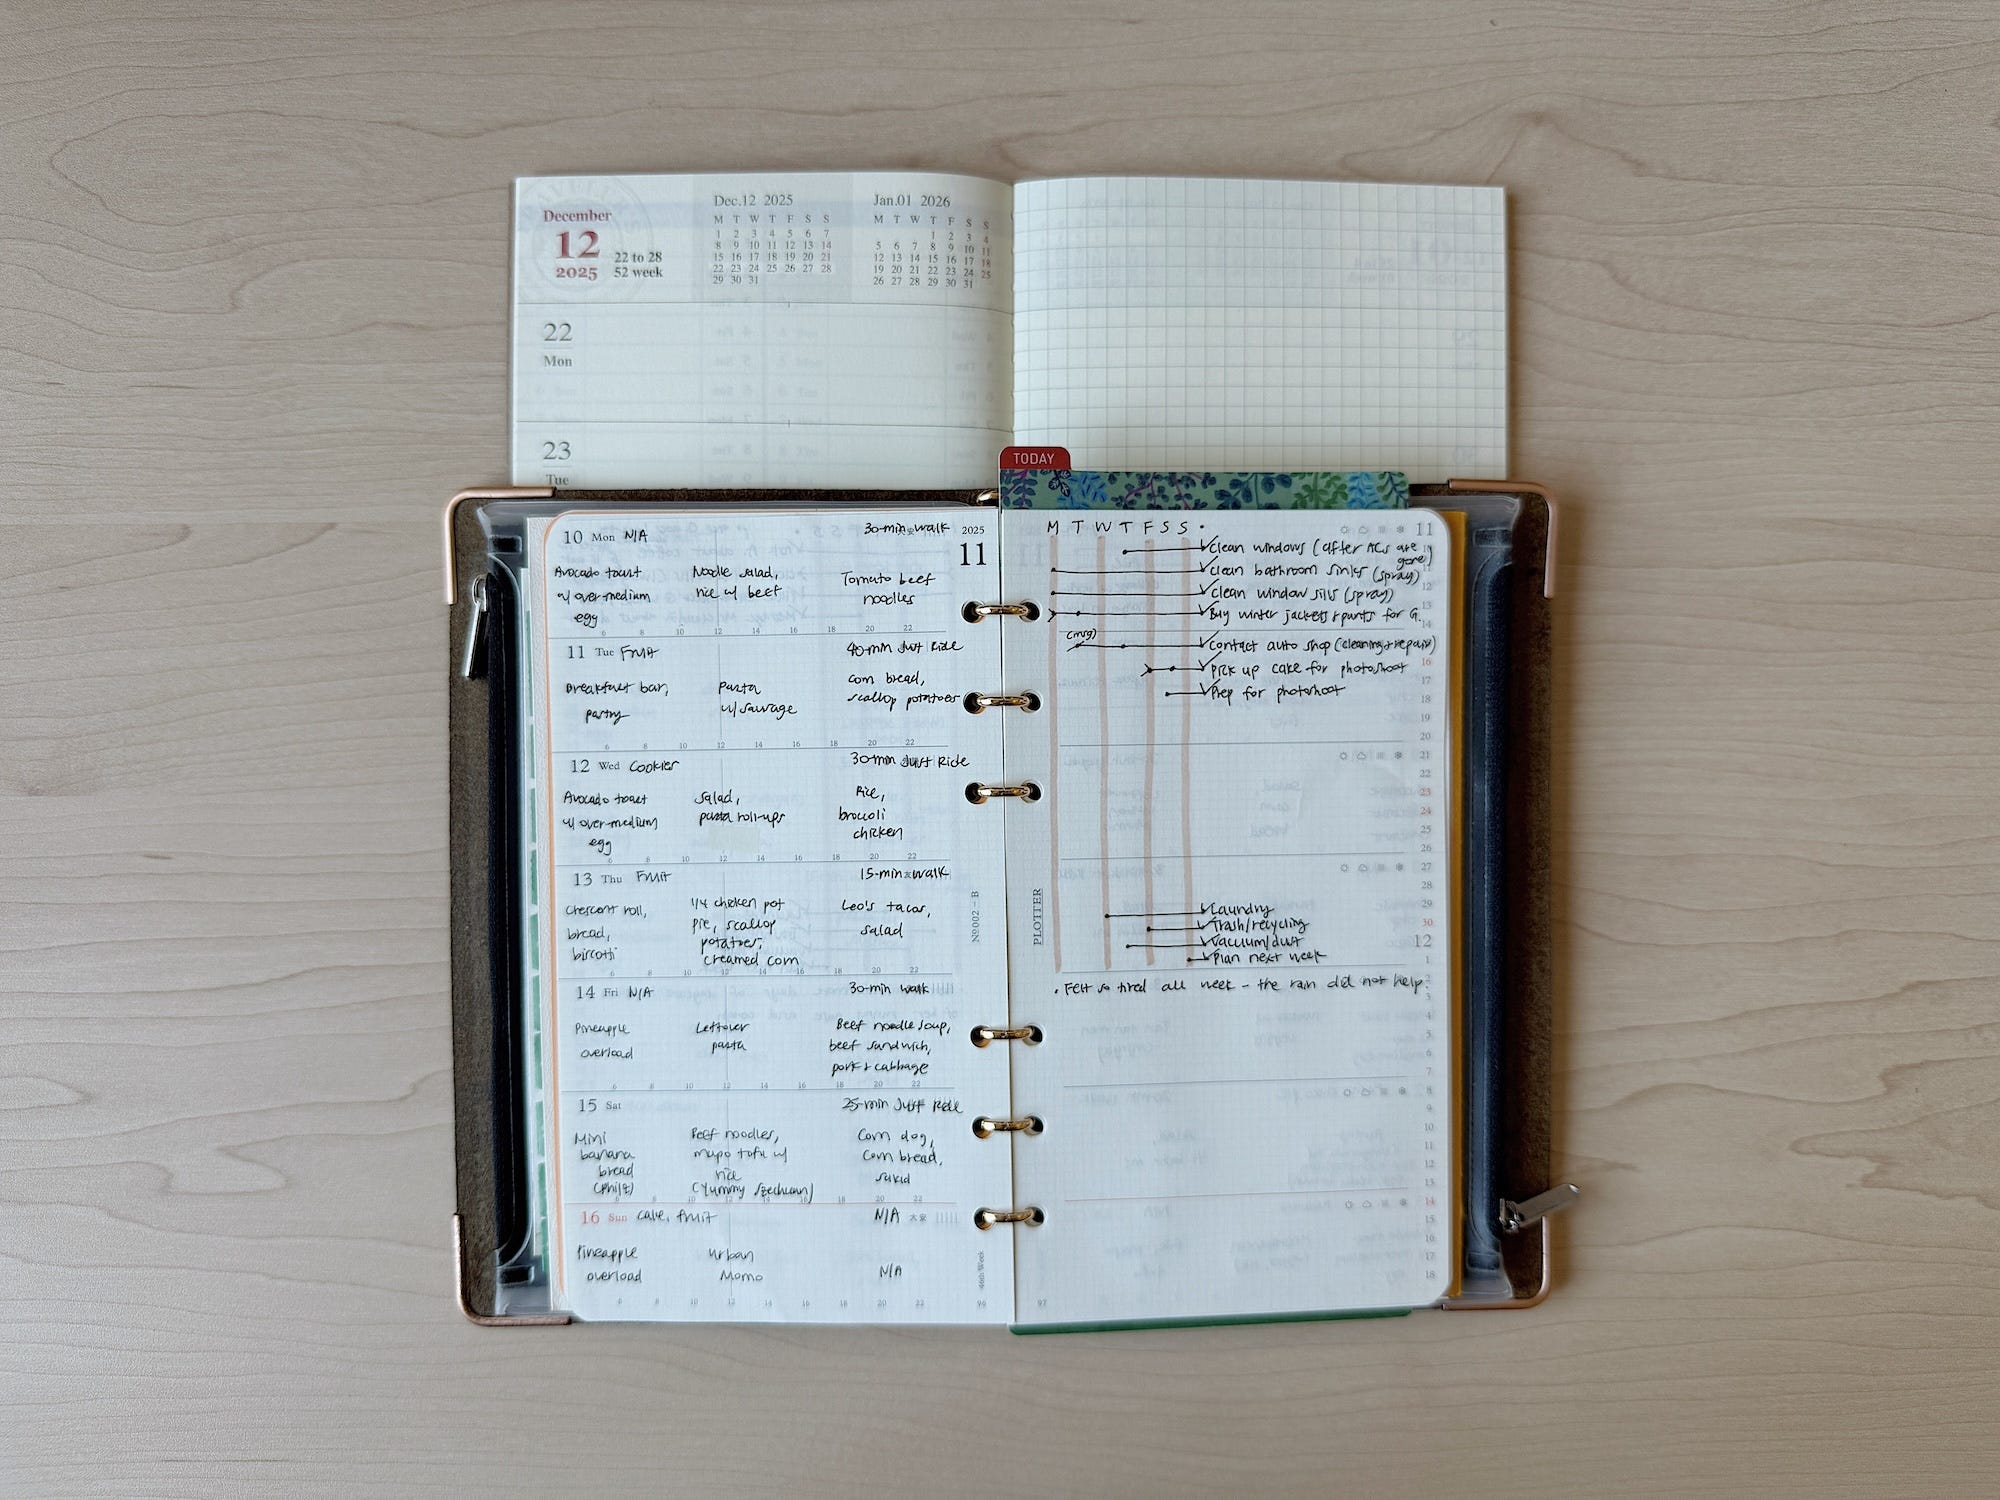 December
12
2025
22 to 28
52 week
Dec.12 2025
M T W T F S S
1 2 3 4 5 6 7
8 9 10 11 12 13 14
15 16 17 18 19 20 21
22 23 24 25 26 27 28
29 30 31
Jan.01 2026
M T W T F S S
1 2 3 4
5 6 7 8 9 10 11
12 13 14 15 16 17 18
19 20 21 22 23 24 25
26 27 28 29 30 31
22
Mon
23
Tue
TODAY
10 Mon N/A
30-min walk
2025
11
Avocado toast
w/ over-medium
egg
Noodle salad,
rice w/ beef
Tomato beef
noodles
6 8 10 12 14 16 18 20 22
11 Tue Fruit
40-min Just Ride
Breakfast bar,
pastry
pasta
w/ sausage
corn bread,
scallop potatoes
6 8 10 12 14 16 18 20 22
12 Wed Cookies
30-min Just Ride
Avocado toast
w/ over-medium
egg
salad,
pasta roll-ups
Rice,
broccoli
chicken
6 8 10 12 14 16 18 20 22
13 Thu Fruit
15-min walk
Crescent roll,
bread,
biscotti
1/4 chicken pot
pie, scallop
potatoes,
creamed corn
Leo's tacos,
salad
6 8 10 12 14 16 18 20 22
14 Fri N/A
30-min walk
Pineapple
overload
Leftover
pasta
Beef noodle soup,
beef sandwich,
pork & cabbage
6 8 10 12 14 16 18 20 22
15 Sat
25-min Just Ride
Mini
banana
bread
(Philz)
Beef noodles,
mapo tofu w/
rice
(Yummy Szechuan)
Corn dog,
Corn bread,
salad
6 8 10 12 14 16 18 20 22
16 Sun cake, fruit
N/A 大安
Pineapple
overload
Urban
Momo
N/A
6 8 10 12 14 16 18 20 22
No002-B
46th Week
96
M T W T F S S •
11
Clean windows (after ACs are
gone)
Clean bathroom sinks (spray)
Clean window sills (spray)
Buy winter jackets & pants for G.
(msg)
Contact auto shop (cleaning & repair)
Pick up cake for photoshoot
Prep for photoshoot
12
13
14
16
17
18
19
20
21
22
23
24
25
26
27
28
29
30
12
1
Laundry
Trash/recycling
Vacuum/dust
Plan next week
PLOTTER
• Felt so tired all week - the rain did not help.
2
3
4
5
6
7
8
9
10
11
12
13
14
15
16
17
18
97